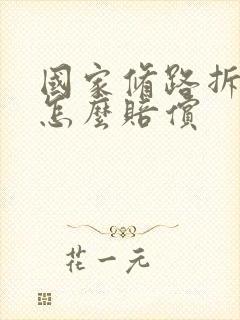 國家脩路拆
怎麼賠償
花一元